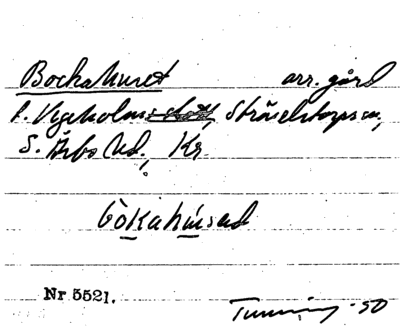 Bockahuset arr. gård
f. Vegeholms slott, Strövelstorps sn,
S. Åsbo hd., Kr.
bòkahúsad
Nr 5521.
-50